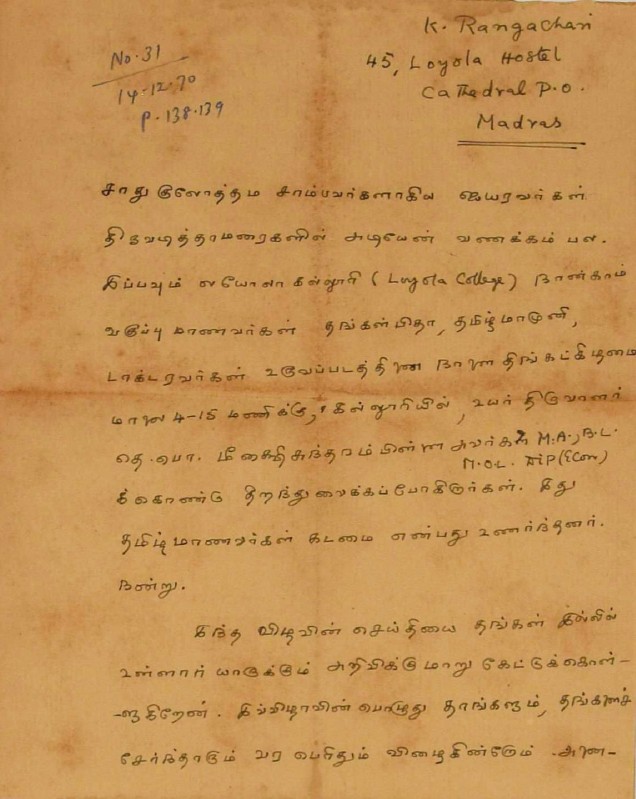 K. Rangachari
45, Loyola Hostel
Cathedral P.O.
Madras
No. 31
14-12-70
P. 138-139
சாது குலோத்தம சாம்பவர்களாகிய ஐயரவர்கள்
திருவடித்தாமரைகளில் அடியேன் வணக்கம் பல.
இப்பவும் லயோலா கல்லூரி (Loyola College) நான்காம்
வகுப்பு மாணவர்கள் தங்கள் பிதா, தமிழ் மாமுனி,
டாக்டரவர்கள் உருவப்படத்தினை நாளை திங்கட்கிழமை
மாலை 4-15 மணிக்கு, கல்லூரியில், உயர் திருவாளர்
தெ. பொ. மீனாக்ஷி சுந்தரம் பிள்ளை அவர்கள் M.A., B.L.
M.O.L. (Econ)
க் கொண்டு திறந்து வைக்கப் போகிறார்கள். இது
தமிழ் மாணவர்கள் கடமை என்பது உணர்ந்தனர்.
நன்று.
இந்த விழாவின் செய்தியை தங்கள் இல்லில்
உள்ளார் யாருக்கும் அறிவிக்குமாறு கேட்டுக்கொள்-
-ளுகிறேன். இவ்விழாவின் பொழுது தாங்களும், தங்களைச்
சேர்ந்தாரும் வர பெரிதும் விழைகின்றேம். அனை-